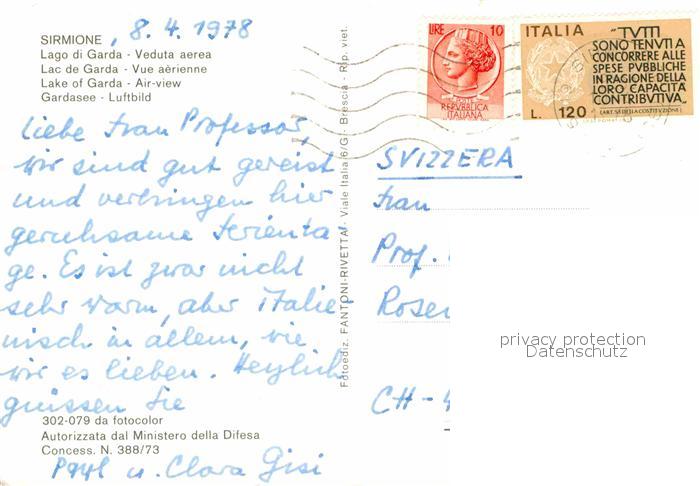 SIRMIONE, 8.4.1978
Lago di Garda - Veduta aerea
Lac de Garda - Vue aèrienne
Lake of Garda - Air-view
Gardasee - Luftbild
Liebe Frau Professor,
wir sind gut gereist
und verbringen hier
geruhsame Ferienta-
ge. Es ist zwar nicht
sehr warm, aber italie-
nisch in allem, wie
wir es lieben. Herzlich
grüssen Sie
302-079 da fotocolor
Autorizzata dal Ministero della Difesa
Concess. N. 388/73
u. Clara Gisi
Fotoediz. FANTONI-RIVETTA - Viale Italia 6/G - Brescia - Rip. viet.
LIRE 10
POSTE
REPVBBLICA
ITALIANA
ITALIA
L. 120
"TVTTI
SONO TENVTI A
CONCORRERE ALLE
SPESE PVBBLICHE
IN RAGIONE DELLA
LORO CAPACITÀ
CONTRIBVTIVA"
(ART. 53 DELLA COSTITVZIONE)
SVIZZERA
Frau
Prof.
Rosen
CH-4
privacy protection
Datenschutz